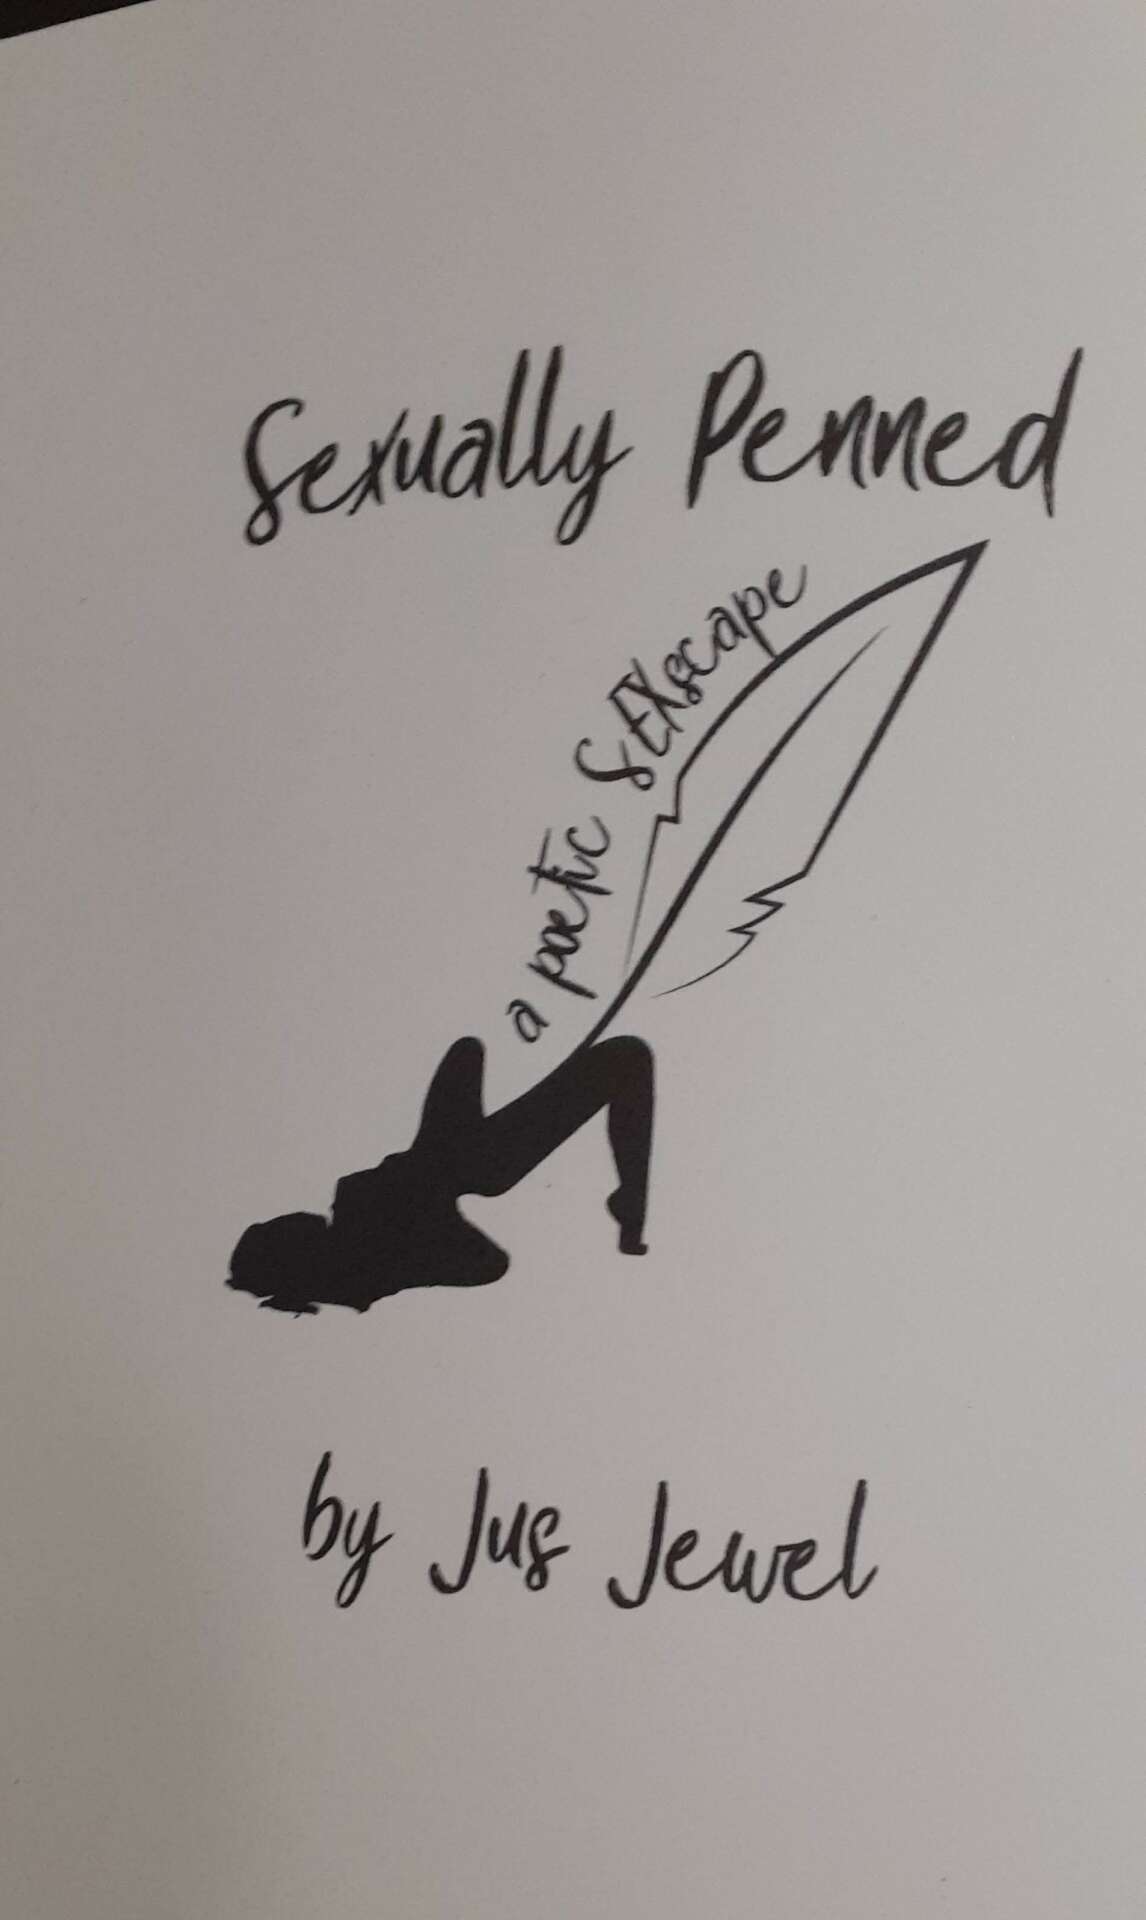 Sexually Penned
a poetic SEXscape
by Jus Jewel